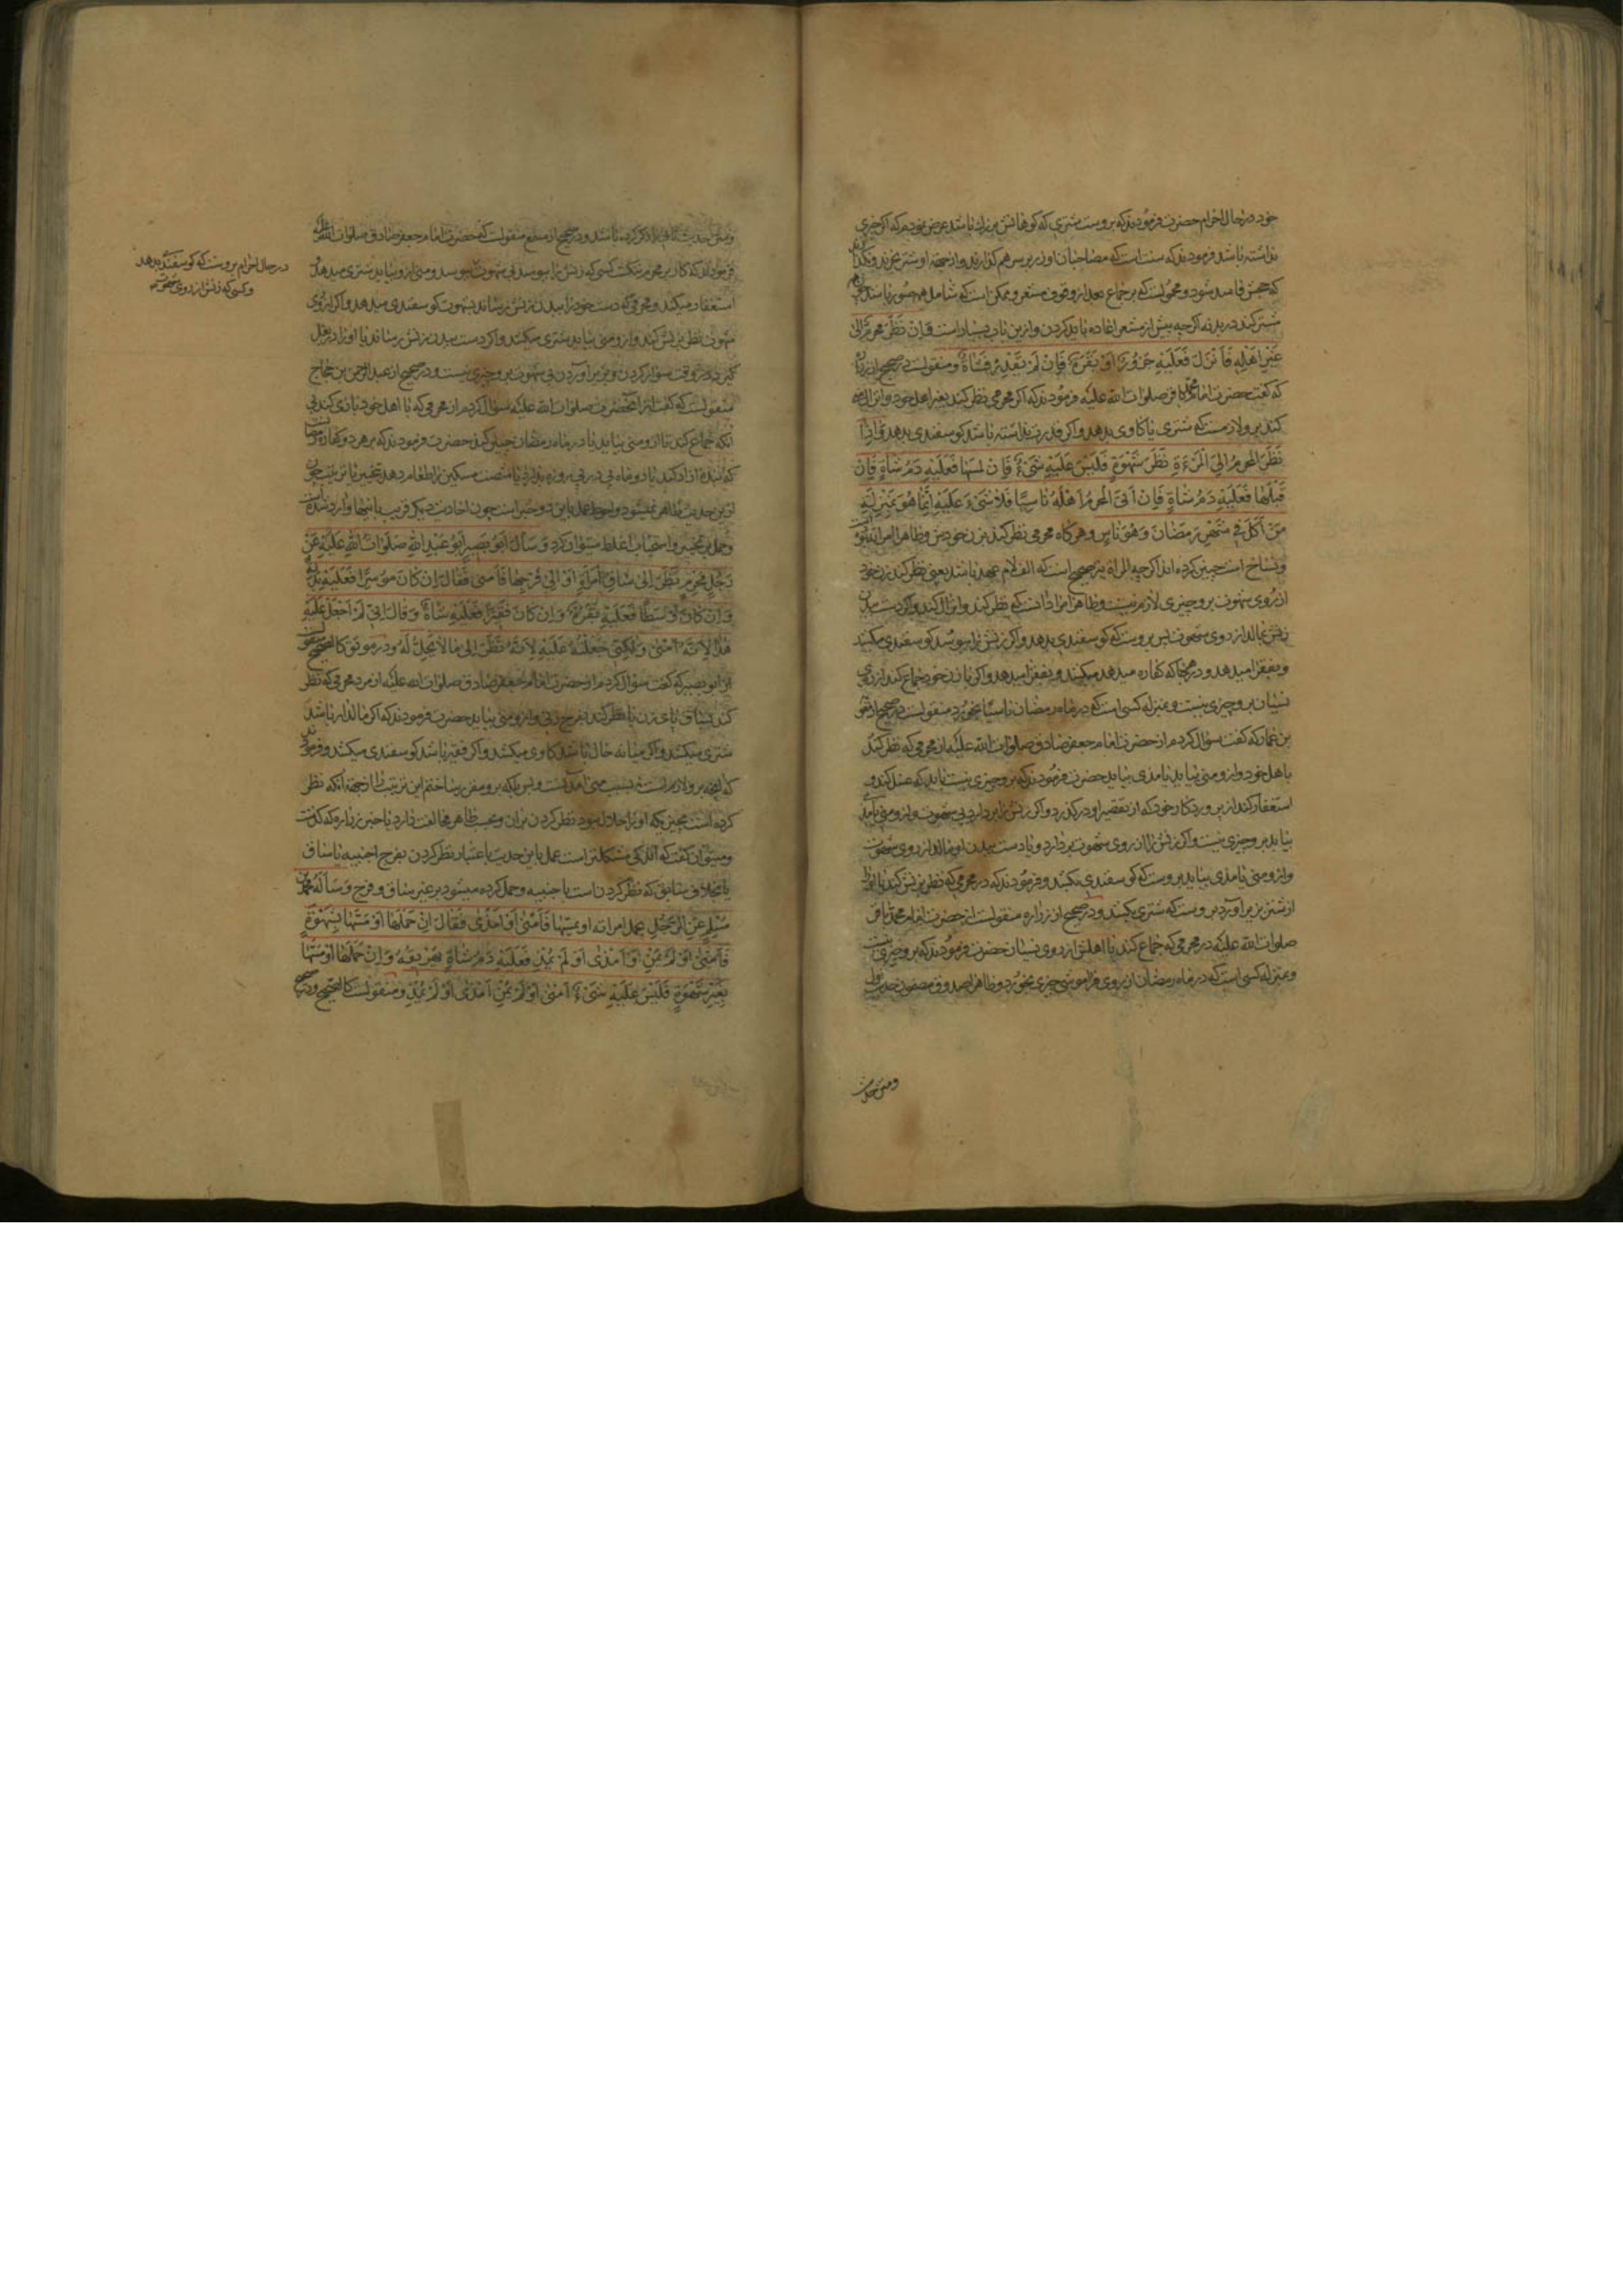 خود در حال احرام حضرت فرمودند که بروست شتری که کوهانش بزرك باشد عرض نمودم که اکر چیزی
نداشته باشد فرمودند که سنت است که مصاحبان او زر بر سر هم کذارند و از جهة او شتر بخرند و
که حجش فاسد شود و محمولست که بر جماع بعد از وقوف مشعر و ممکن است که شامل
شتر کند در بدنه اکر چه پیش از مشعر اعاده باید کردن و ازین باب بسیار است فَاِنْ نَظَرَ مُحْرِمٌ اِلیٰ
غَیْرِ اَهْلِهِ فَاَنْزَلَ فَعَلَیْهِ جَزُورٌ اَوْ بَقَرَةٌ فَاِنْ لَمْ یَقْدِرْ فَشَاةٌ و منقولست در صحیح از زراره
که کفت حضرت امام محمد باقر صلوات الله علیه فرمودند که اکر محرمی نظر کند بغیر اهل خود و انزال
کند برو لازمست که شتری یا کاوی بدهد و اکر قدرت نداشته باشد کوسفندی بدهد وَاِذَا
نَظَرَ الْمُحْرِمُ اِلَی الْمَرْءَةِ نَظَرَ شَهْوَةٍ فَلَیْسَ عَلَیْهِ شَیْءٌ فَاِنْ لَمَسَهَا فَعَلَیْهِ دَمُ شَاةٍ فَاِنْ
قَبَّلَهَا فَعَلَیْهِ دَمُ شَاةٍ فَاِنْ اَتَی الْمُحْرِمُ اَهْلَهُ نَاسِیًا فَلَا شَیْءَ عَلَیْهِ اِنَّمَا هُوَ بِمَنْزِلَةِ
مَنْ اَکَلَ فِی شَهْرِ رَمَضَانَ وَهُوَ نَاسٍ و هرکاه محرمی نظر کند بزن خودش و ظاهرا امراته بوده
و نساخ است چنین کرده اند اکر چه المراة نیز صحیح است که الف لام عهد باشد یعنی نظر کند بزن خود
از روی شهوت برو چیزی لازم نیست و ظاهرا مراد انست که نظر کند و انزال نکند و اکر دست ببدن
زنش بمالد از روی شهوت پس بروست که کوسفندی بدهد و اکر زنش را ببوسد کوسفندی میکشد
و بفقرا میدهد و در هرجا که کفاره میدهد میکشد و بفقرا میدهد و اکر با زن خود جماع کند از روی
نسیان برو چیزی نیست و بمنزله کسی است که در ماه رمضان ناسیا بخورد منقولست در صحیح از معویه
بن عمار که کفت سؤال کردم از حضرت امام جعفر صادق صلوات الله علیه از محرمی که نظر کند
باهل خود و ازو منی بیاید یا مذی بیاید حضرت فرمودند که برو چیزی نیست باید که غسل کند و
استغفار کند از پروردکار خود که از تقصیر او در کذرد و اکر زنش را بردارد بی شهوت و ازو منی یا مذی
بیاید برو چیزی نیست و اکر زنش را از روی شهوت بردارد و یا دست ببدن او بمالد از روی شهوت
و ازو منی یا مذی بیاید بروست که کوسفندی بکشد و فرمودند که در محرمی که نظر بزنش کند یا او را
از شتر بزیر آورد بروست که شتری بکشد و در صحیح از زراره منقولست از حضرت امام محمد باقر
صلوات الله علیه در محرمی که جماع کند با اهلش از روی نسیان حضرت فرمودند که برو چیزی نیست
و بمنزله کسی است که در ماه رمضان از روی فراموشی چیزی بخورد و ظاهرا صدوق مضمون حدیث اول
و متن حدیث
فرمودند که کار بر محرم تنکست کسی که زنش را ببوسد بی شهوت ببوسد و منی ازو بیاید شتری میدهد و
استغفار میکند و محرمی که دست خود را ببدن زنش رساند بشهوت کوسفندی میدهد و اکر از روی
شهوت نظر بزنش کند و ازو منی بیاید شتری میکشد و اکر دست ببدن زنش رساند یا او را در بغل
کیرد در وقت سوار کردن و بزیر آوردن بی شهوت برو چیزی نیست و در صحیح از عبدالرحمن بن حجاج
منقولست که کفت از آنحضرت صلوات الله علیه سؤال کردم از محرمی که با اهل خود بازی کند بی
آنکه جماع کند تا ازو منی بیاید یا در ماه رمضان چنین کند حضرت فرمودند که بر هر دو کفاره
که بنده آزاد کند یا دو ماه پی در پی روزه بدارد یا شصت مسکین را طعام دهد
ازین حدیث ظاهر نمیشود و احوط عمل باین دو خبر است چون احادیث دیکر قریب باینها وارد شده است
و حمل بر تخییر و استحباب اغلظ میتوان کرد وَ سَاَلَ اَبُو بَصِیرٍ اَبُو عَبْدِ اللهِ صَلَوَاتُ اللهِ عَلَیْهِ عَنْ
رَجُلٍ مُحْرِمٍ نَظَرَ اِلیٰ سَاقِ اِمْرَاَةٍ اَوْ اِلیٰ فَرْجِهَا فَاَمْنیٰ فَقَالَ اِنْ کَانَ مُوسِرًا فَعَلَیْهِ بَدَنَةٌ
وَ اِنْ کَانَ وَسَطًا فَعَلَیْهِ بَقَرَةٌ وَ اِنْ کَانَ فَقِیرًا فَعَلَیْهِ شَاةٌ وَ قَالَ اِنّی لَمْ اَجْعَلْ عَلَیْهِ
هٰذَا لِاَنَّهُ اَمْنیٰ وَلٰکِنّی جَعَلْتُهُ عَلَیْهِ لِاَنَّهُ نَظَرَ اِلیٰ مَا لَا یَحِلُّ لَهُ و در موثق کالصحیح منقولست
از ابو بصیر که کفت سؤال کردم از حضرت امام جعفر صادق صلوات الله علیه از مرد محرمی که نظر
کند بساق پای زن یا نظر کند بفرج زنی و ازو منی بیاید حضرت فرمودند که اکر مالدار باشد
شتری میکشد و اکر میانه حال باشد کاوی میکشد و اکر فقیر باشد کوسفندی میکشد و فرمودند
که آنچه برو لازم است نه بسبب منی آمدنست و بس بلکه برو مقرر ساختم این ترتیب را از جهة آنکه نظر
کرده است بچیزی که او را حلال نبود نظر کردن بران و بحسب ظاهر مخالفت دارد با خبر زراره که کذشت
و میتوان کفت که آنکه مشکلتر است عمل باین حدیث باعتبار نظر کردن بفرج اجنبیه یا ساق
یا بخلاف سابق که نظر کردن است باجنبیه و حمل کرده میشود بر غیر ساق و فرج وَ سَاَلَهُ مُحَمَّدُ بْنُ
مُسْلِمٍ عَنِ الرَّجُلِ یحمل امراته او یمسّها فَاَمْنیٰ اَوْ اَمْذیٰ فَقَالَ اِنْ حَمَلَهَا اَوْ مَسَّهَا بِشَهْوَةٍ
فَاَمْنیٰ اَوْ لَمْ یُمْنِ اَوْ اَمْذیٰ اَوْ لَمْ یُمْذِ فَعَلَیْهِ دَمُ شَاةٍ یُهَرِیقُهُ وَ اِنْ حَمَلَهَا اَوْ مَسَّهَا
بِغَیْرِ شَهْوَةٍ فَلَیْسَ عَلَیْهِ شَیْءٌ اَمْنیٰ اَوْ لَمْ یُمْنِ اَمْذیٰ اَوْ لَمْ یُمْذِ و منقولست کالصحیح و در صحیح
در حال احرام بروست که کوسفند بدهد
و کسی که زنش از روی شهوت